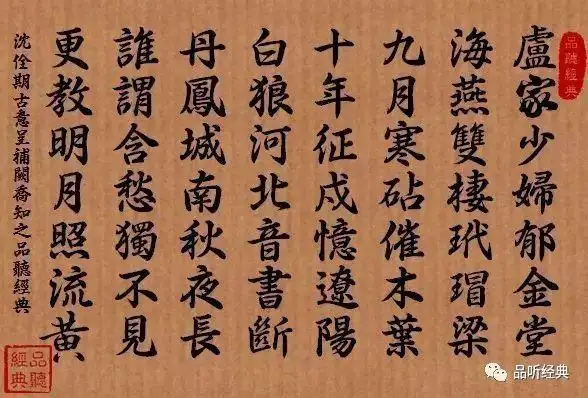 盧家少婦郁金堂
海燕雙棲玳瑁梁
九月寒砧催木葉
十年征戍憶遼陽
白狼河北音書斷
丹鳳城南秋夜長
誰謂含愁獨不見
更教明月照流黃
沈佺期古意呈補闕喬知之品聽經典
品聽經典
品聽經典
品听经典